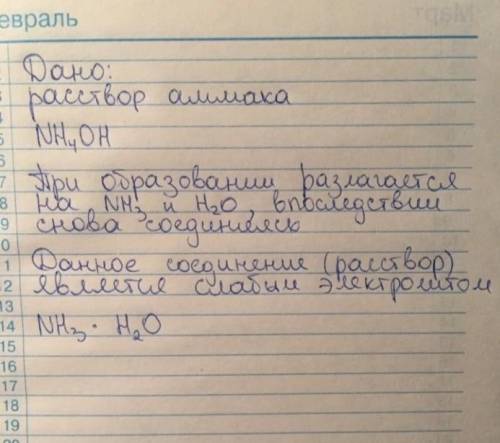 евраль
Март
Дано:
3 расствор аммака
4
5 NH4OH
6
7 При образовании разлагается
8 на NH3 и H2O, впоследствии
9 снова соединяясь
0
1 Данное соединение (расствор)
2 является слабым электролитом
13
14 NH3 · H2O
15
16
17
18
19